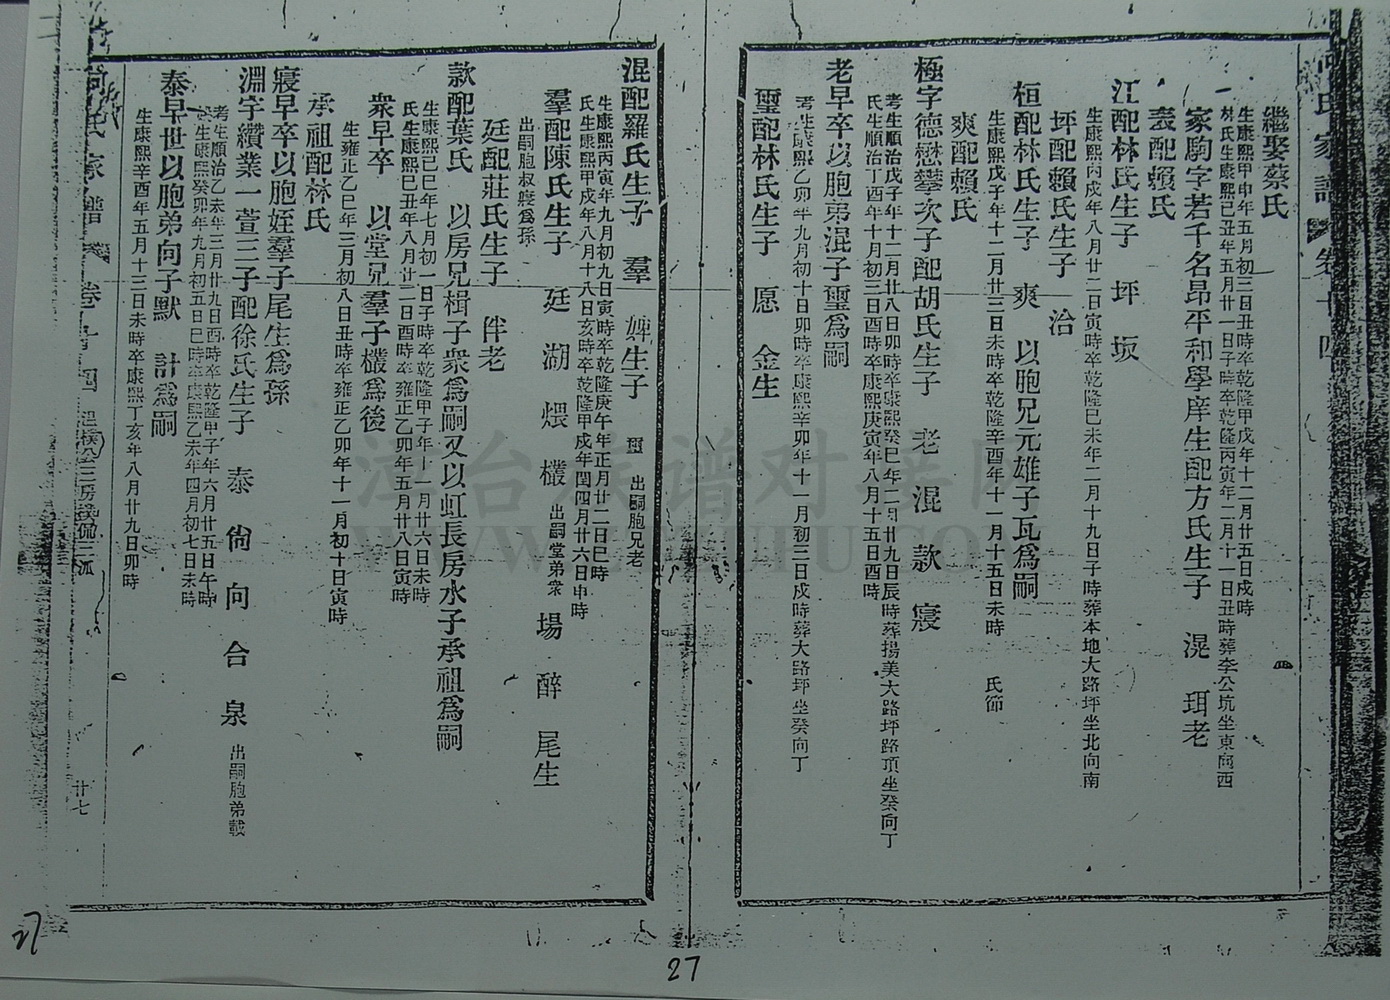 何氏家譜 卷廿四
繼娶蔡氏
生康熙甲申年五月初三日丑時卒乾隆甲戌年十二月廿五日戌時
林氏生康熙己丑年五月廿一日子時卒乾隆丙寅年二月十一日丑時葬李公坑坐東向西
家駒字若千名昂平和學庠生配方氏生子 滉 珥老
配賴氏
江配林氏生子 坪 坂
生康熙丙戌年八月廿二日寅時卒乾隆己未年二月十九日子時葬本地大路坪坐北向南
坪配賴氏生子 治
桓配林氏生子 爽 以胞兄元雄子瓦為嗣
生康熙戊子年十二月廿三日未時卒乾隆辛酉年十一月十五日未時 氏節
爽配賴氏
極字德懋攀次子配胡氏生子 老 混 款 寢
考生順治戊子年十二月廿八日卯時卒康熙癸巳年二月廿九日辰時葬揚美大路坪路頂坐癸向丁
氏生順治丁酉年十月初三日酉時卒康熙庚寅年八月十五日酉時
老早卒以胞弟混子璽為嗣
考生康熙乙卯年九月初十日卯時卒康熙辛卯年十一月初三日戌時葬大路坪坐癸向丁
璽配林氏生子 愿 金生
混配羅氏生子 羣 婢生子 璽 出嗣胞兄老
生康熙丙寅年九月初九日寅時卒乾隆庚午年正月廿二日巳時
氏生康熙甲戌年八月十八日亥時卒乾隆甲戌年閏四月廿六日申時
羣配陳氏生子 廷 湖 煨 欉 出嗣堂弟衆 場 醉 尾生
出嗣胞叔寢為孫
廷配莊氏生子 伴老
款配葉氏 以房兄楫子衆為嗣又以虹長房水子承祖為嗣
生康熙己巳年七月初一日子時卒乾隆甲子年十一月廿六日未時
氏生康熙己丑年八月廿二日酉時卒雍正乙卯年五月廿八日寅時
衆早卒 以堂兄羣子欉為後
生雍正乙巳年三月初八日丑時卒雍正乙卯年十一月初十日寅時
承祖配林氏
寢早卒以胞姪羣子尾生為孫
淵字纘業一萱三子配徐氏生子 泰 尙 向 合 泉 出嗣胞弟載
考生順治乙未年三月廿九日酉時卒乾隆甲子年六月廿五日午時
生康熙癸卯年九月初五日巳時卒康熙乙未年四月初七日未時
泰早世以胞弟向子默 計為嗣
生康熙辛酉年五月十三日未時卒康熙丁亥年八月廿九日卯時
何氏家譜 卷廿四 廿七
27
27